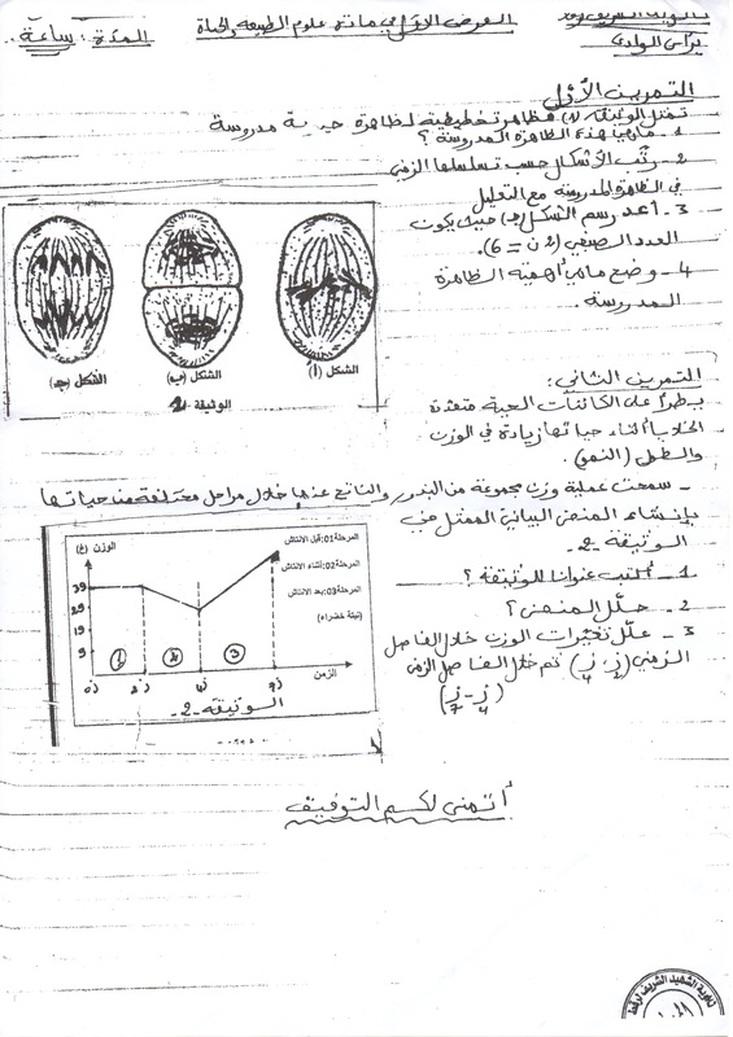 الفرض الأول في مادة علوم الطبيعة والحياة
المدة : ساعة
براس الوادي
التمرين الأول
تمثل الوثيقة (1) مظاهر تخطيطية لظاهرة حيوية مدروسة
1 - ماهي هذه الظاهرة المدروسة ؟
2 - رتّب الأشكال حسب تسلسلها الزمني
في الظاهرة المدروسة مع التعليل
3 - أعد رسم الشكل (جـ) حيث يكون
العدد الصبغي (2ن = 6).
4 - وضح ماهي أهمية الظاهرة
المدروسة .
الشكل (أ)
الشكل (ب)
الشكل (جـ)
الوثيقة -1-
التمرين الثاني :
يطرأ على الكائنات الحية متعددة
الخلايا أثناء حياتها زيادة في الوزن
والطول (النمو) .
- سمحت عملية وزن مجموعة من البذور والناتج عنها خلال مراحل مختلفة من حياتها
بإنشاء المنحنى البياني الممثل في
الوثيقة -2-
1 - أكتب عنوانا للوثيقة ؟
2 - حلّل المنحنى ؟
3 - علّل تغيّرات الوزن خلال الفاصل
الزمني (ز2 - ز4) ثم خلال الفاصل الزمني
(ز4 - ز7)
الوزن (غ)
المرحلة01:قبل الانتاش
المرحلة02:أثناء الانتاش
المرحلة03:بعد الانتاش
(نبتة خضراء)
39
29
19
9
1 2 3
ز0 ز2 ز4 ز7
الزمن
الوثيقة -2-
أتمنى لكم التوفيق
ثانوية الشهيد الشريف لرقط